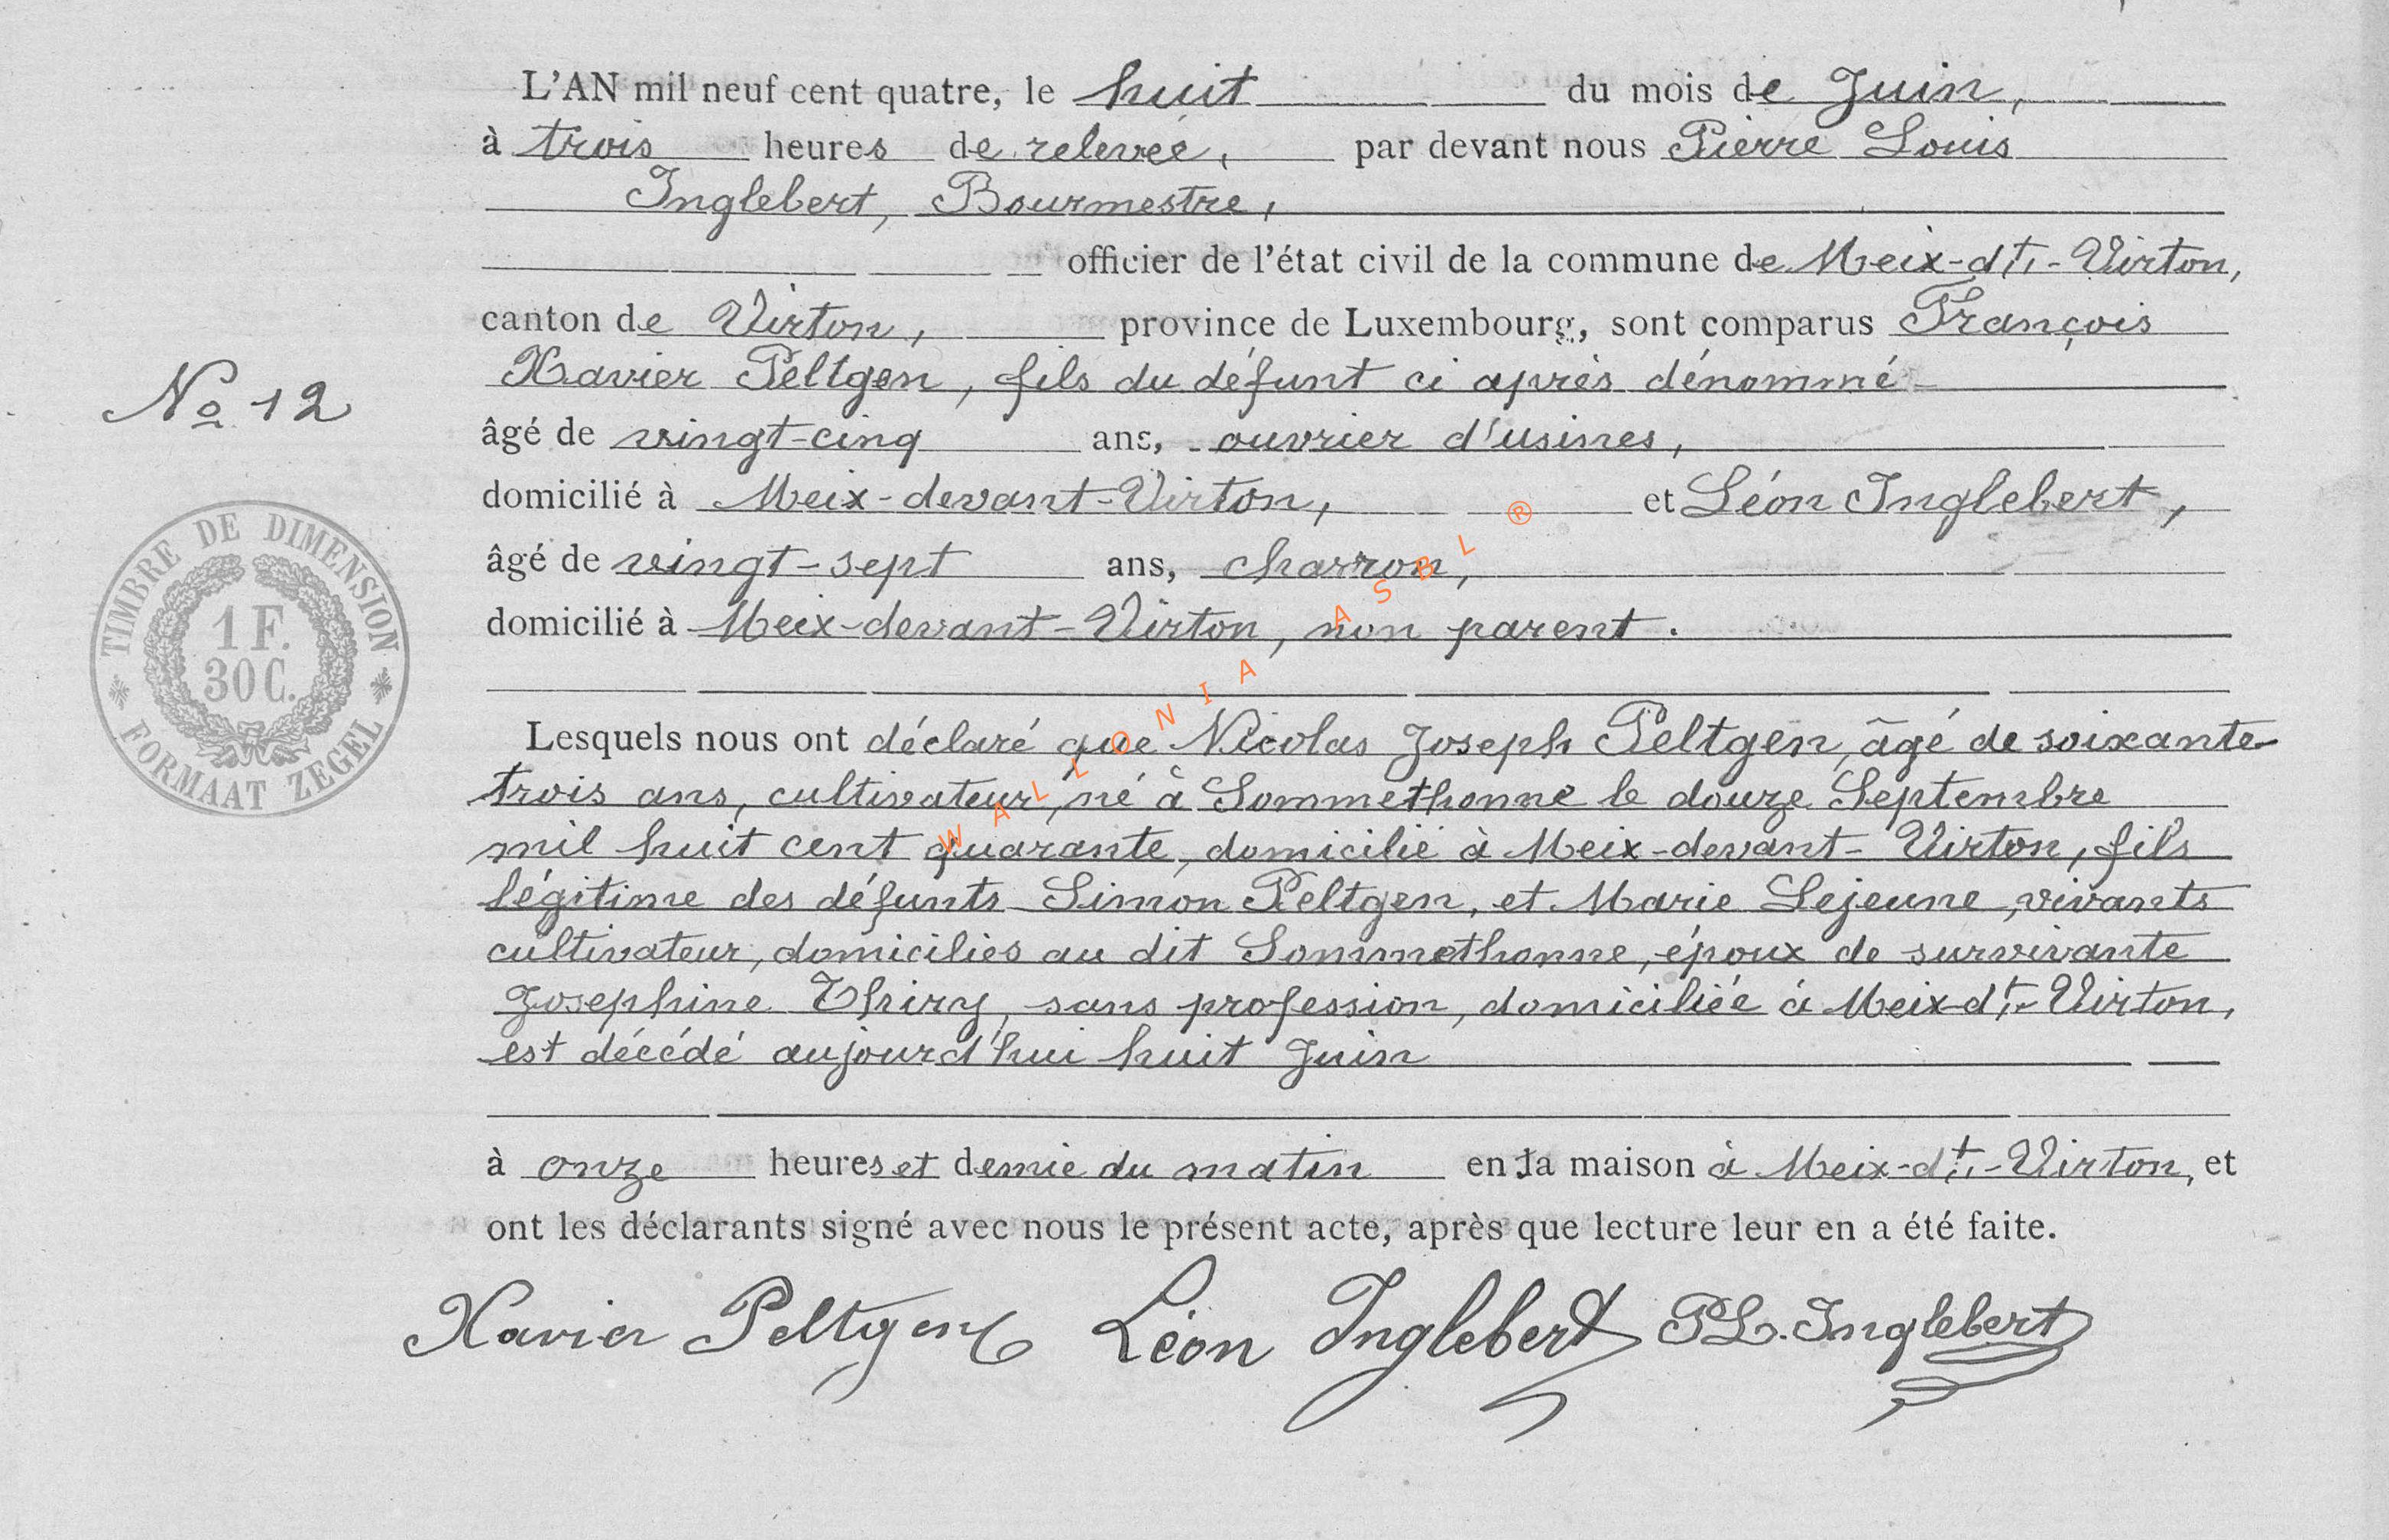 L'AN mil neuf cent quatre, le huit du mois de Juin,
à trois heures de relevée, par devant nous Pierre Louis
Inglebert, Bourmestre,
officier de l'état civil de la commune de Meix-dt-Virton,
canton de Virton, province de Luxembourg, sont comparus François
Xavier Peltgen, fils du défunt ci après dénommé
No 12
âgé de vingt-cinq ans, ouvrier d'usines,
domicilié à Meix-devant-Virton, et Léon Inglebert,
âgé de vingt-sept ans, charron,
domicilié à Meix-devant-Virton, non parent.
TIMBRE DE DIMENSION
1 F.
30 C.
FORMAAT ZEGEL
Lesquels nous ont déclaré que Nicolas Joseph Peltgen, âgé de soixante
trois ans, cultivateur, né à Sommethonne le douze Septembre
mil huit cent quarante, domicilié à Meix-devant-Virton, fils
légitime des défunts Simon Peltgen, et Marie Lejeune, vivants
cultivateur, domiciliés au dit Sommethonne, époux de survivante
Josephine Thiry, sans profession, domiciliée à Meix-dt-Virton,
est décédé aujourd'hui huit Juin
à onze heures et demie du matin en sa maison à Meix-dt-Virton, et
ont les déclarants signé avec nous le présent acte, après que lecture leur en a été faite.
Xavier Peltgen Léon Inglebert PL. Inglebert
WALLONIA ASBL ®